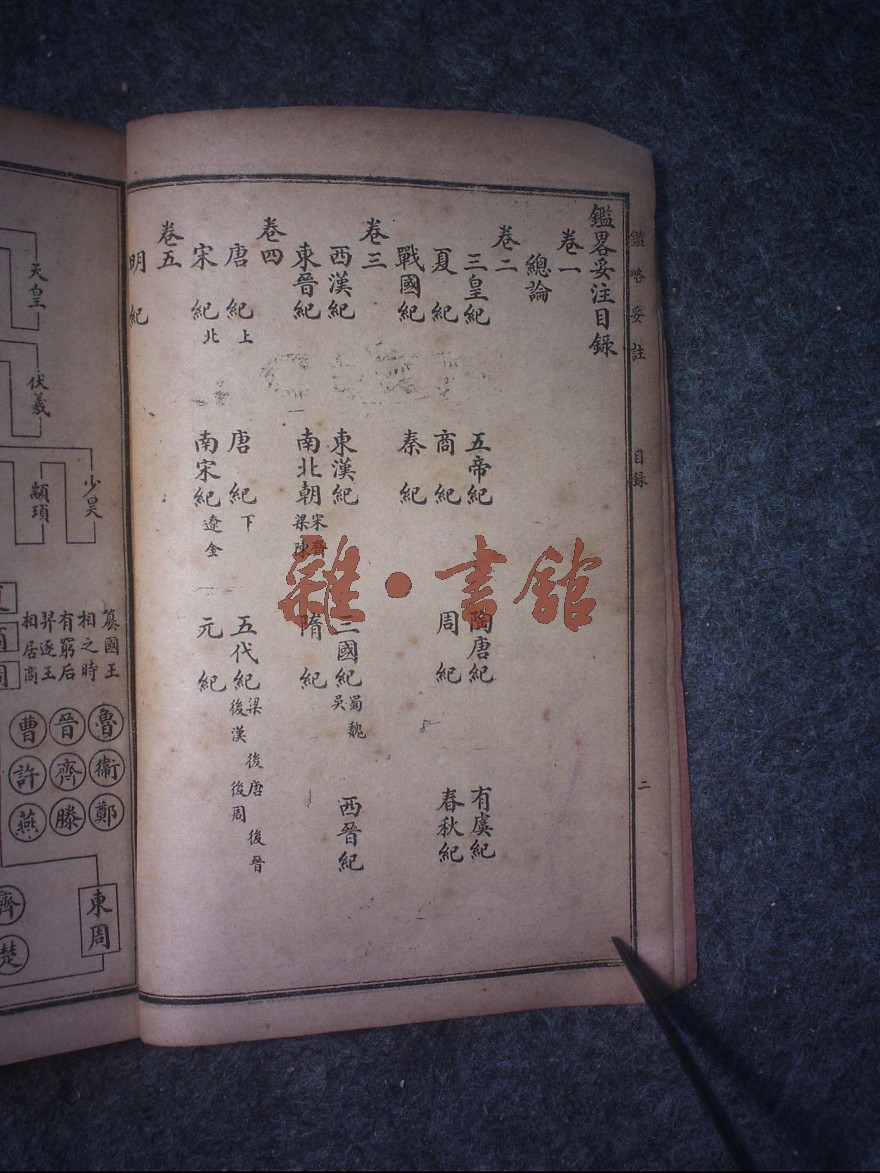 鑑略妥註　目録　二
鑑畧妥注目録
卷一
總論
卷二
三皇紀　五帝紀　陶唐紀　有虞紀
夏紀　商紀　周紀　春秋紀
戰國紀　秦紀
卷三
西漢紀　東漢紀　三國紀 蜀魏吳　西晉紀
東晉紀　南北朝 宋齊梁陳　隋紀
卷四
唐紀 上　唐紀 下　五代紀 梁 後唐 後晉 後漢 後周
宋紀 北　南宋紀 遼金　元紀
卷五
明紀
天皇
伏羲
少昊
顓頊
篡國王
相之時
有窮后
羿逐王
相居商
魯　衞　鄭
晉　齊　滕
曹　許　燕
東周
齊
楚
雜·書館